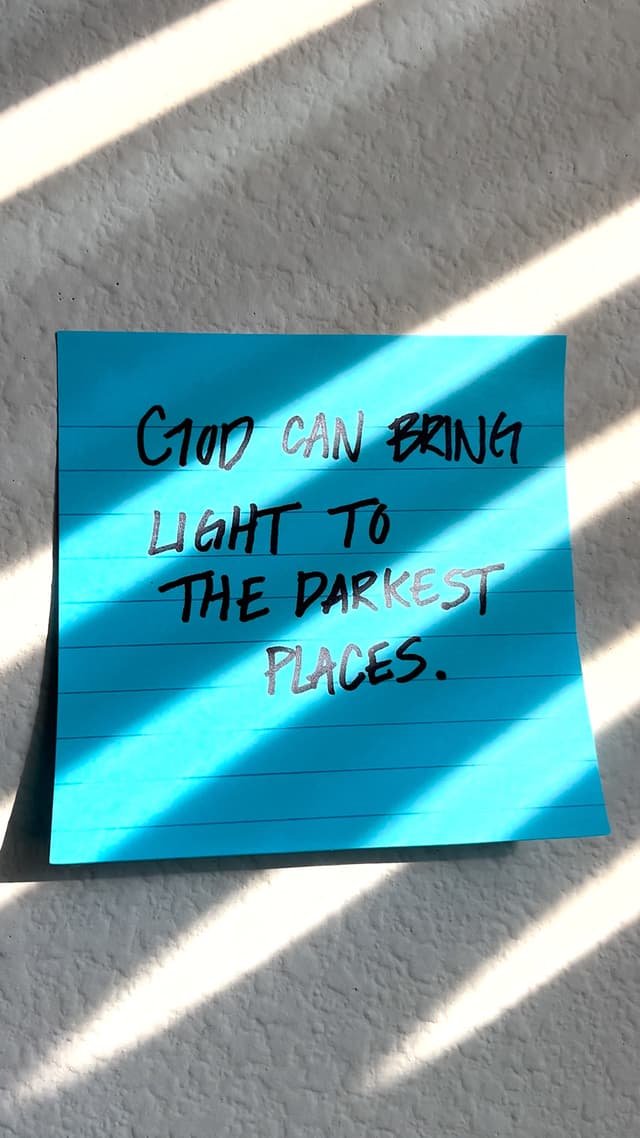 GOD CAN BRING
LIGHT TO
THE DARKEST
PLACES.